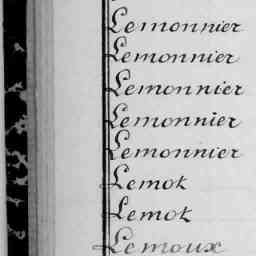 Lemonnier
Lemonnier
Lemonnier
Lemonnier
Lemonnier
Lemok
Lemok
Lemoux